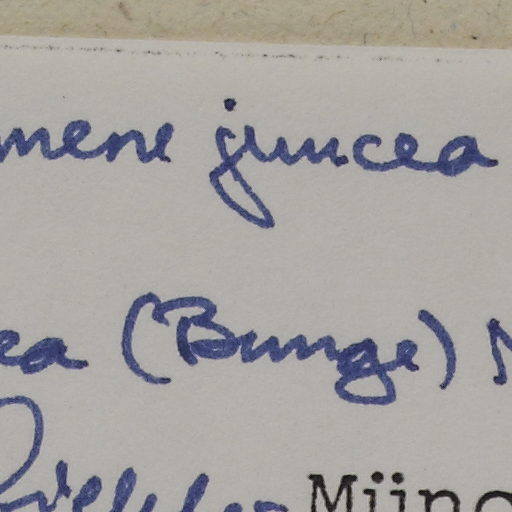 mene juncea
ea (Bunge) N
Münc